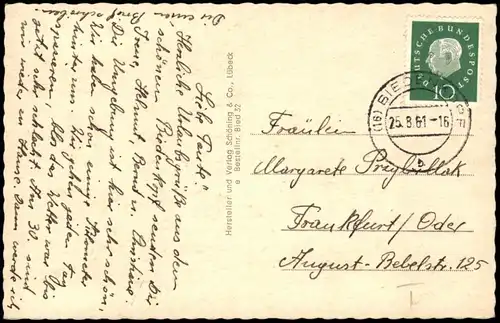 Liebe Tante!
Herzliche Urlaubsgrüße aus dem
schönen Biedenkopf senden Dir
Irene, Helmut, Bernd u.
Die Umgebung ist hier sehr schön,
Wir haben schon einige Kilometer
hinter uns. Wir gehen jeden Tag
spazieren, blos das Wetter war bis
jetzt sehr schlecht. Am 30. sind
wir wieder im Hause. Dann werde ich
Dir einen Brief
schreiben.
Hersteller und Verlag Schöning & Co., Lübeck
e Bestellnr. Bied 32
DEUTSCHE BUNDESPOST
10
(16) BIEDENKOPF
25.8.61-16
b
Fräulein
Margarete Przybillak
Frankfurt/Oder
August-Bebelstr. 125